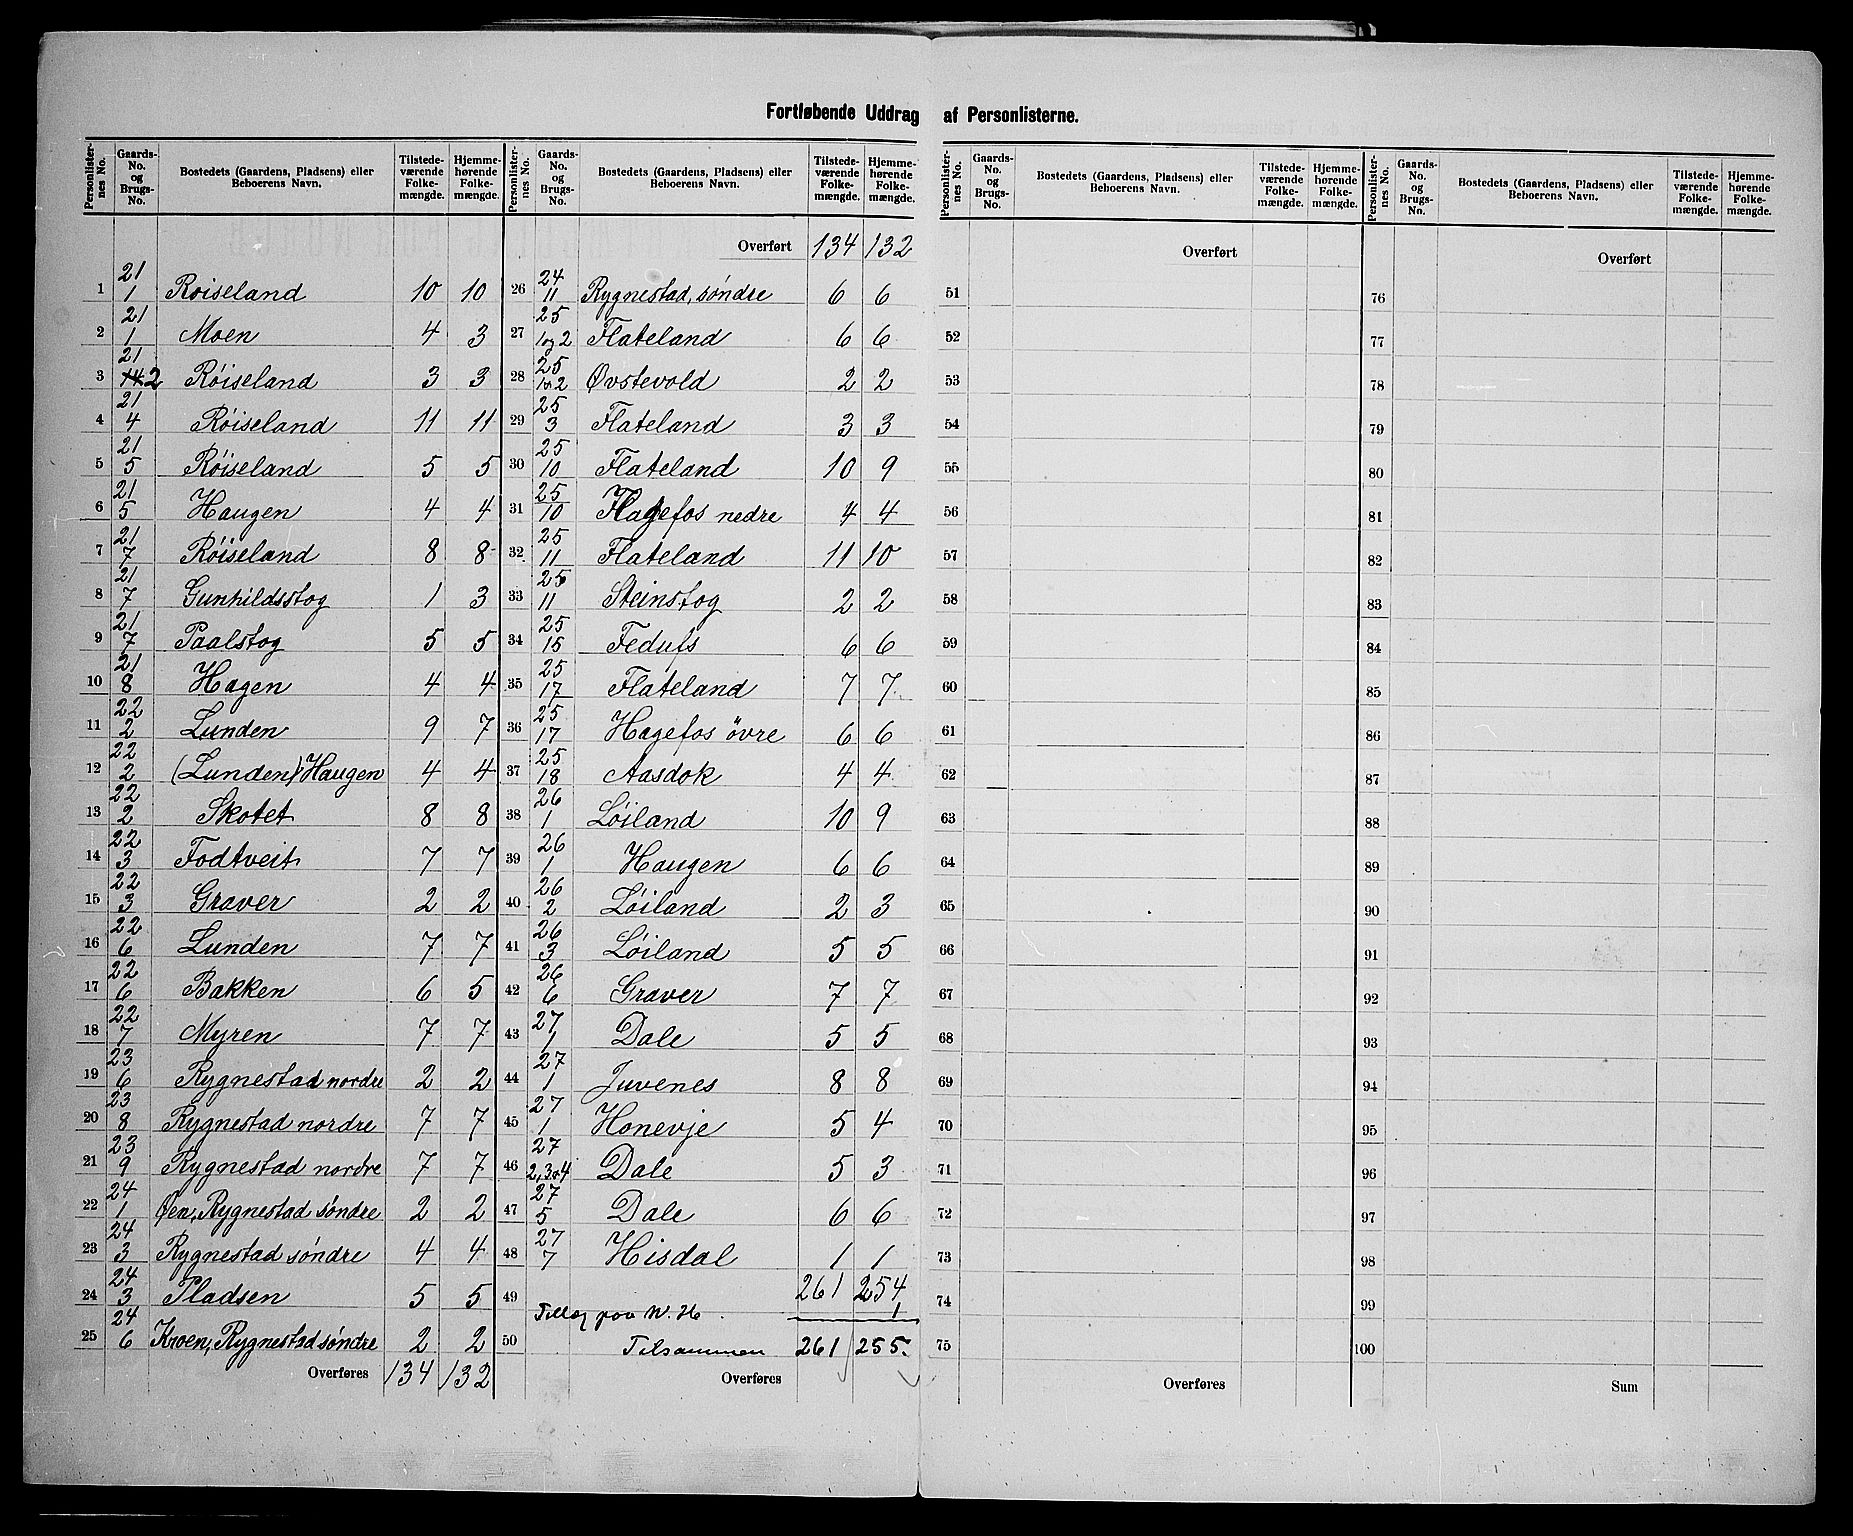 Fortløbende Uddrag af Personlisterne.
Personlister-nes No. Gaards-No. og Brugs-No. Bostedets (Gaardens, Pladsens) eller Beboerens Navn. Tilstede-værende Folke-mængde. Hjemme-hørende Folke-mængde.
1 21/1 Røiseland 10 10
2 21/1 Moen 4 3
3 21/2 Røiseland 3 3
4 21/4 Røiseland 11 11
5 21/5 Røiseland 5 5
6 21/5 Haugen 4 4
7 21/7 Røiseland 8 8
8 21/7 Gunhildsstog 1 3
9 21/7 Paalstog 5 5
10 21/8 Hagen 4 4
11 22/2 Lunden 9 7
12 22/2 (Lunden) Haugen 4 4
13 22/2 Skotet 8 8
14 22/3 Fodtveit 7 7
15 22/3 Graver 2 2
16 22/6 Lunden 7 7
17 22/6 Bakken 6 5
18 22/7 Myren 7 7
19 23/6 Rygnestad nordre 2 2
20 23/8 Rygnestad nordre 7 7
21 23/9 Rygnestad nordre 7 7
22 24/1 Øen, Rygnestad søndre 2 2
23 24/3 Rygnestad søndre 4 4
24 24/3 Pladsen 5 5
25 24/6 Kroen, Rygnestad søndre 2 2
Overføres 134 132
Personlister-nes No. Gaards-No. og Brugs-No. Bostedets (Gaardens, Pladsens) eller Beboerens Navn. Tilstede-værende Folke-mængde. Hjemme-hørende Folke-mængde.
Overført 134 132
26 24/11 Rygnestad, søndre 6 6
27 25/1 og 2 Flateland 6 6
28 25/1 & 2 Øvstevold 2 2
29 25/3 Flateland 3 3
30 25/10 Flateland 10 9
31 25/10 Hagefos nedre 4 4
32 25/11 Flateland 11 10
33 25/11 Steinstog 2 2
34 25/15 Fedufs 6 6
35 25/17 Flateland 7 7
36 25/17 Hagefos övre 6 6
37 25/18 Aasdok 4 4
38 26/1 Løiland 10 9
39 26/1 Haugen 6 6
40 26/2 Løiland 2 3
41 26/3 Løiland 5 5
42 26/6 Graver 7 7
43 27/1 Dale 5 5
44 27/1 Juvenes 8 8
45 27/1 Honevje 5 4
46 27/2, 3 & 4 Dale 5 3
47 27/5 Dale 6 6
48 27/7 Hisdal 1 1
261 254
49 Tillæg paa N. 26 1
50 Tilsammen 261 255
Overføres
Personlister-nes No. Gaards-No. og Brugs-No. Bostedets (Gaardens, Pladsens) eller Beboerens Navn. Tilstede-værende Folke-mængde. Hjemme-hørende Folke-mængde.
Overført
51
52
53
54
55
56
57
58
59
60
61
62
63
64
65
66
67
68
69
70
71
72
73
74
75
Overføres
Personlister-nes No. Gaards-No. og Brugs-No. Bostedets (Gaardens, Pladsens) eller Beboerens Navn. Tilstede-værende Folke-mængde. Hjemme-hørende Folke-mængde.
Overført
76
77
78
79
80
81
82
83
84
85
86
87
88
89
90
91
92
93
94
95
96
97
98
99
100
Sum